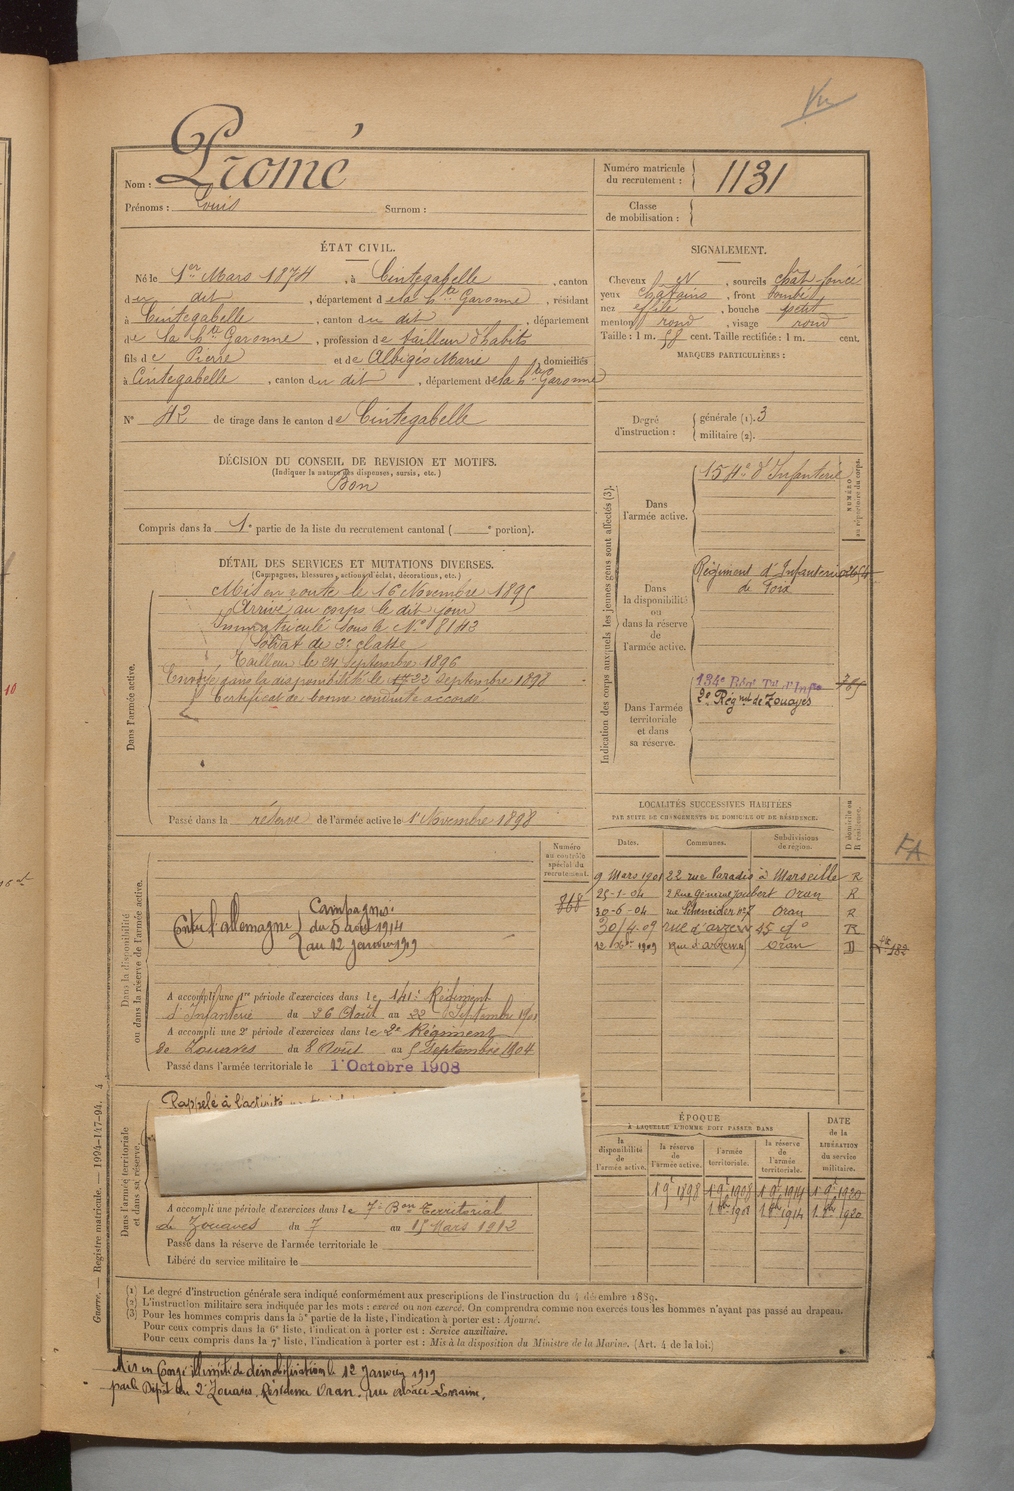 Vu
Nom : Promé
Prénoms : Louis Surnom :
Numéro matricule du recrutement : 1131
Classe de mobilisation :
ÉTAT CIVIL.
Né le 1er Mars 1874, à Cintegabelle, canton
du dit, département de la hte Garonne, résidant
à Cintegabelle, canton du dit, département
de la hte Garonne, profession de tailleur d'habits
fils de Pierre et de Albigès Marie, domiciliés
à Cintegabelle, canton du dit, département de la hte Garonne
N° 42 de tirage dans le canton de Cintegabelle
SIGNALEMENT.
Cheveux N, sourcils chât-foncé
yeux châtains, front bombé,
nez effilé, bouche petite
menton rond, visage rond
Taille : 1 m. 58 cent. Taille rectifiée : 1 m. cent.
MARQUES PARTICULIÈRES :
Degré d'instruction : générale (1). 3
militaire (2).
DÉCISION DU CONSEIL DE REVISION ET MOTIFS.
(Indiquer la nature des dispenses, sursis, etc.)
Bon
Compris dans la 1e partie de la liste du recrutement cantonal ( e portion).
DÉTAIL DES SERVICES ET MUTATIONS DIVERSES.
(Campagnes, blessures, actions d'éclat, décorations, etc.)
Dans l'armée active.
Mis en route le 16 Novembre 1895
Arrivé au corps le dit jour
Immatriculé sous le N° 8143
Soldat de 2e classe
Tailleur le 24 Septembre 1896
Envoyé dans la disponibilité le 22 Septembre 1898
Certificat de bonne conduite accordé
Passé dans la réserve de l'armée active le 1er Novembre 1898
Indication des corps auxquels les jeunes gens sont affectés (3).
NUMÉRO au répertoire du corps.
Dans l'armée active.
154e d'Infanterie
Dans la disponibilité ou dans la réserve de l'armée active.
Régiment d'Infanterie
de Foix
Dans l'armée territoriale et dans sa réserve.
134e Régt Tal d'Infie
2e Régnt de Zouaves
LOCALITÉS SUCCESSIVES HABITÉES
PAR SUITE DE CHANGEMENTS DE DOMICILE OU DE RÉSIDENCE.
Dates. Communes. Subdivisions de région. D domicile ou R résidence.
9 Mars 1901 22 rue Paradis à Marseille R
25-1-04 2 Rue Général Joubert Oran R
30-6-04 rue Schneider n° 7 Oran R
30/4-09 rue d'arzew 45 do R
12 Xbre 1909 rue d'arzew Oran D
FA
Dans la disponibilité ou dans la réserve de l'armée active.
Numéro au contrôle spécial du recrutement.
868
Campagnes :
Contre l'allemagne du 5 août 1914
au 12 janvier 1919
A accompli une 1re période d'exercices dans le 141e Régiment
d'Infanterie du 26 Août au 22 Septembre 1901
A accompli une 2e période d'exercices dans le 2e Régiment
de Zouaves du 8 Août au 5 Septembre 1904
Passé dans l'armée territoriale le 1er Octobre 1908
Dans l'armée territoriale et dans sa réserve.
Rappelé à l'activité
A accompli une période d'exercices dans le 7e Bon Territorial
de Zouaves du 7 au 15 Mars 1912
Passé dans la réserve de l'armée territoriale le
Libéré du service militaire le
ÉPOQUE
A LAQUELLE L'HOMME DOIT PASSER DANS
la disponibilité de l'armée active. la réserve de l'armée active. l'armée territoriale. la réserve de l'armée territoriale. DATE de la LIBÉRATION du service militaire.
1 9e 1898 1 9e 1908 1 9e 1914 1 9e 1920
1 8bre 1908 1 8bre 1914 1 8bre 1920
Guerre. — Registre matricule. — 1994-147-94. 4
(1) Le degré d'instruction générale sera indiqué conformément aux prescriptions de l'instruction du 4 décembre 1889.
(2) L'instruction militaire sera indiquée par les mots : exercé ou non exercé. On comprendra comme non exercés tous les hommes n'ayant pas passé au drapeau.
(3) Pour les hommes compris dans la 5e partie de la liste, l'indication à porter est : Ajourné.
Pour ceux compris dans la 6e liste, l'indication à porter est : Service auxiliaire.
Pour ceux compris dans la 7e liste, l'indication à porter est : Mis à la disposition du Ministre de la Marine. (Art. 4 de la loi.)
Mis en Congé illimité de démobilisation le 12 Janvier 1919
par le Dépôt du 2e Zouaves. Résidence Oran. rue alsace-Lorraine.